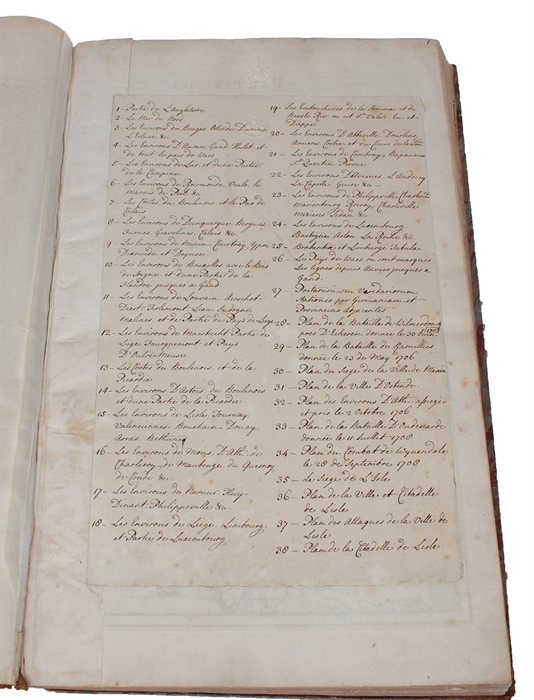 1 - Partie de L'angleterre
2 - La Mer du Nord
3 - Les Environs de Bruges Ostende Damme
L'Ecluse &c
4 - Les Environs D'Anvers Gand Hulst et
du tout le païs de Waes
5 - Les Environs de Lier et d'une Partie
de la Campine
6 - Les Environs de Roermonde Venlo le
marais de Peel &c
7 - Les Costes du Boulenois et le Pas de
Calais
8 - Les Environs de Dunquerque Bergues
Furnes Gravelines Calais &c
9 - Les Environs de Menin Courtray Ypres
Dixmude et Deynse
10 - Les Environs de Bruxelles avec le Bois
de Soigne et d'une Partie de la
Flandre jusques a Gand
11 - Les Environs de Louvain Aerschot
Diest Tirlemont Leau Judogne
Malines et de Partie du Pays de Liege
12 - Les Environs de Mastricht Partie de
Liege Fauquemont et Pays
D'Outre-Meuse
13 - Les Costes du Boulenois et de la
Picardie
14 - Les Environs D'Artois du Boulenois
et d'une Partie de la Picardie
15 - Les Environs de Lisle Tournay
Valenciennes Bouchain Douay
Arras Bethune
16 - Les Environs de Mons D'Ath de
Charleroy de Maubeuge du Quesnoy
de Condé &c
17 - Les Environs de Namur Huy
Dinant Philippeville &c
18 - Les Environs de Liege Limbourg
et Partie de Luxembourg
19 - Les Embouchures de la Somme et de
Bresle Riv. ou est St Valeri Eu et
Dieppe
20 - Les Environs D'Abbeville Doulens
Amiens Corbie et du Cours de la
21 - Les Environs de Cambray Bapaume
St Quentin Perone
22 - Les Environs D'Avesnes L'Andrecy
La Capelle Guise &c
23 - Les Environs de Philippeville Charlemt
Marienbourg Rocroy Charleville
Mezieres Sedan &c
24 - Les Environs de Luxembourg
Bastogne Arlon La Roche &c
25 - Brabantiæ et Limburgi Tabula
26 - Le Pays de Waes ou sont marquees
Les lignes depuis Anvers jusques a
Gand
27 - Postarum seu Veredariorum
Stationes per Germaniam et
Provincias Adjacentes
28 - Plan de la Bataille de Wilmerdonq
pres D'Eckeren donnée le 30
29 - Plan de la Bataille de Ramellies
donnée le 23 de May 1706
30 - Plan du Siege de la Ville de Menin
31 - Plan de la Ville D'Ostende
32 - Plan des Environs D'Ath assiegé
et pris le 2 Octobre 1706
33 - Plan de la Bataille D'Oudenarde
donnée le 11 Juillet 1708
34 - Plan du Combat de Wynendale
le 28 de Septembre 1708
35 - Le Siege de L'Isle
36 - Plan de la Ville et Citadelle
de Lisle
37 - Plan des Attaques de la Ville de
Lisle
38 - Plan de la Citadelle de Lisle